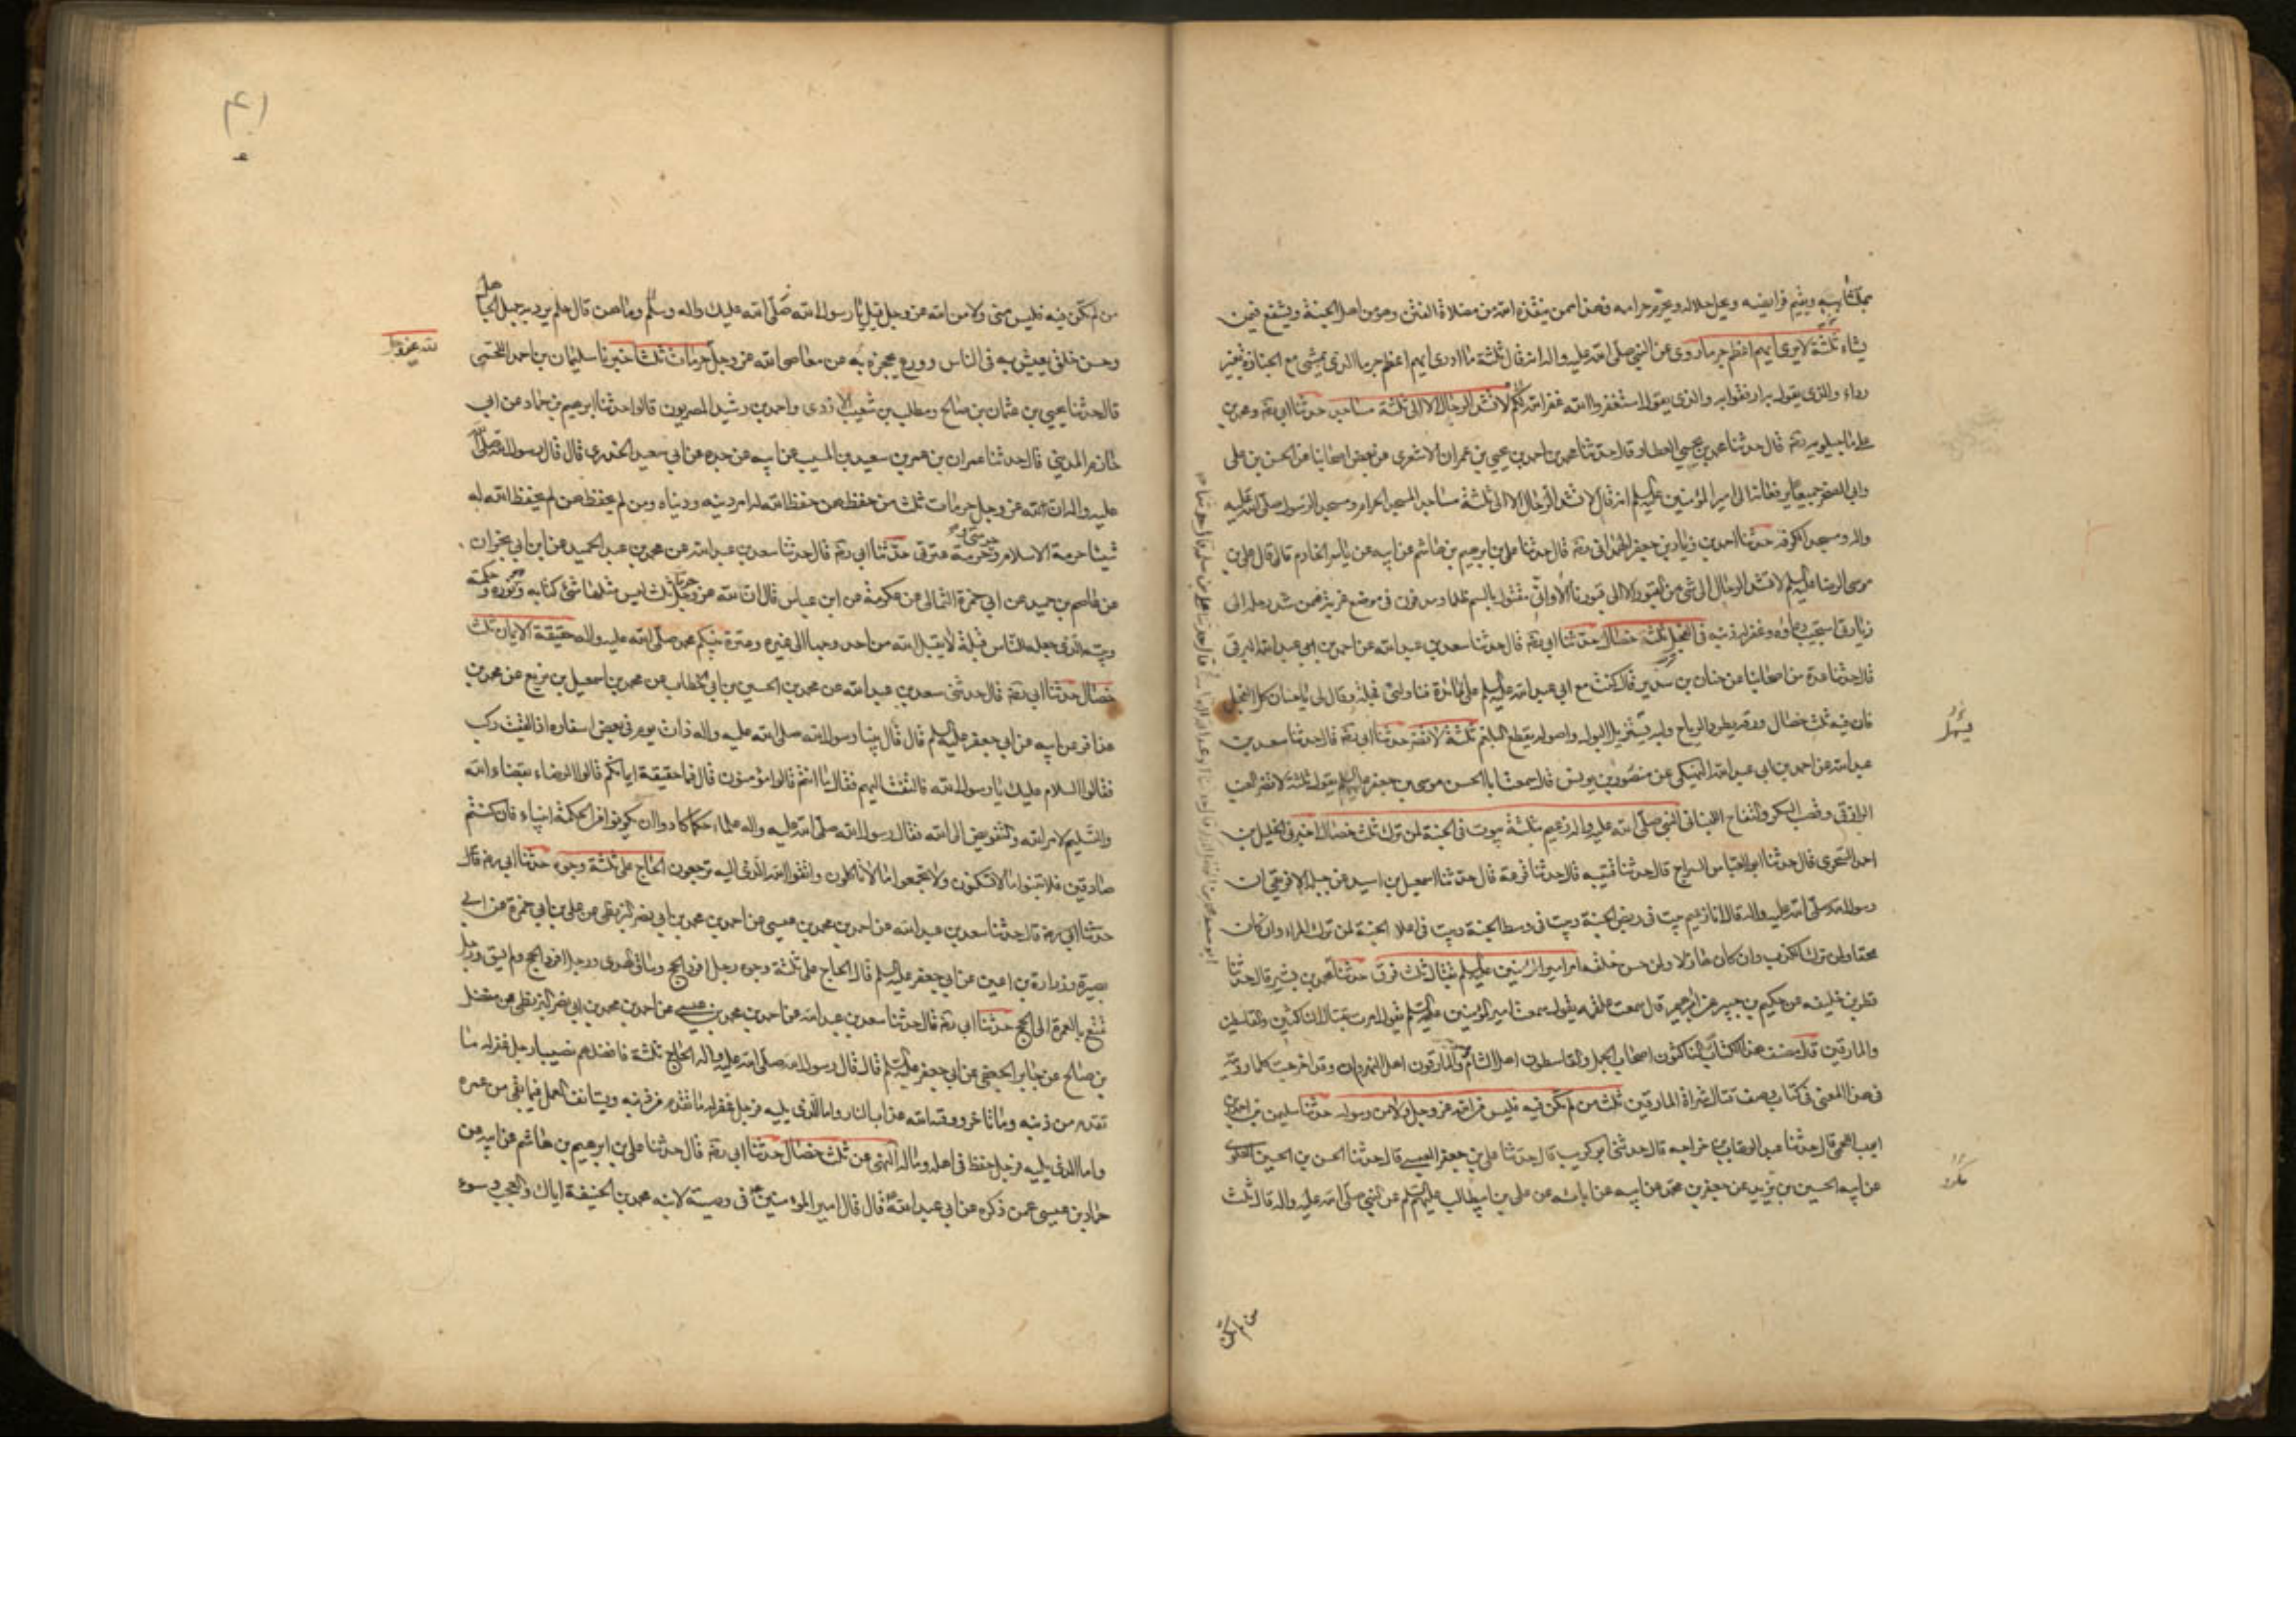 بمتشابهه ويقيم فرايضه ويحل حلاله ويحرم حرامه فهذا ممن ينقذه الله من مضلات الفتن وهو من اهل الجنة ويشفع فيمن
يشاء ثلثة لا يدرى ايهم اعظم جرما روى عن النبي صلى الله عليه واله انه قال ثلثة ما ادرى ايهم اعظم جرما الذى يمشى مع الجنازة بغير
رداء والذى يقول ارفقوا به والذى يقول استغفروا الله غفر الله لكم لا تشد الرحال الا الى ثلثة مساجد حدثنا ابى ومحمد بن
على ماجيلويه قال حدثنا محمد بن يحيى العطار قال حدثنا محمد بن احمد بن يحيى بن عمران الاشعرى عن بعض اصحابنا عن الحسن بن على
وابى الصخر جميعا يرفعانه الى امير المؤمنين عليه السلم انه قال لا تشد الرحال الا الى ثلثة مساجد المسجد الحرام ومسجد الرسول صلى الله عليه
واله ومسجد الكوفة حدثنا احمد بن زياد بن جعفر الهمدانى قال حدثنا على بن ابرهيم بن هاشم عن ابيه عن ياسر الخادم قال قال على بن
موسى الرضا عليه السلم لا تشد الرحال الى شى من القبور الا الى قبورنا الا وانى مقتول بالسم ظلما ومدفون فى موضع غربة فمن شد رحله الى
زيارتى استجيب دعاؤه وغفر له ذنبه فى الفجل ثلثة خصال حدثنا ابى قال حدثنا سعد بن عبد الله عن احمد بن ابى عبد الله البرقى
قال حدثنا عدة من اصحابنا عن حنان بن سدير قال كنت مع ابى عبد الله عليه السلم على المائدة فناولنى فجلة وقال لى يا حنان كل الفجل
فان فيه ثلث خصال ورقه يطرد الرياح ولبه يسربل البول واصوله يقطع البلغم ثلثة لا تضر حدثنا ابى قال حدثنا سعد بن
عبد الله عن احمد بن ابى عبد الله عن منصور بن يونس قال سمعت ابا الحسن موسى بن جعفر عليه السلم يقول ثلثة لا تضر العنب
الرازقى وقصب السكر والتفاح اللبنانى النبى صلى الله عليه واله زعيم بثلثة بيوت فى الجنة لمن ترك ثلث خصال اخبرنى الخليل بن
احمد السجزى قال حدثنا ابو العباس السراج قال حدثنا قتيبه قال حدثنا قزعة قال حدثنا اسمعيل بن اسيد عن جبلة الافريقى ان
رسول الله صلى الله عليه واله قال انا زعيم ببيت فى ربض الجنة وبيت فى وسط الجنة وبيت فى اعلا الجنة لمن ترك المراء وان كان
محقا ولمن ترك الكذب وان كان هازلا ولمن حسن خلقه امر امير المؤمنين عليه السلم بقتال ثلث فرق حدثنا محمد بن بشير قال حدثنا
فطر بن خليفه عن حكيم بن جبير عن ابرهيم قال سمعت علقمه يقول سمعت امير المؤمنين عليه السلم يقول امرت بقتال الناكثين والقاسطين
والمارقين قال مصنف هذا الكتاب الناكثون اصحاب الجمل والقاسطون اهل الشام والمارقون اهل النهروان وقد اخرجت كلما رويته
فى هذا المعنى فى كتاب وصف قتال الشراة المارقين ثلث من لم تكن فيه فليس من الله عز وجل ولا من رسوله حدثنا سليمن بن احمد بن
ايوب اللخمى قال حدثنا عبد الوهاب بن خراجه قال حدثنى ابو كريب قال حدثنا على بن جعفر العبسى قال حدثنا الحسن بن الحسين العلوى
عن ابيه الحسين بن يزيد عن جعفر بن محمد عن ابيه عن ابائه عن على بن ابيطالب عليهم السلم عن النبى صلى الله عليه واله قال ثلث
من لم تكن
من لم تكن فيه فليس منى ولا من الله عز وجل قيل يا رسول الله صلى الله عليك واله وسلم وما هن قال حلم يرد به جهل الجاهل
وحسن خلق يعيش به فى الناس وورع يحجزه به عن معاصى الله عز وجل حرمات ثلث اخبرنا سليمان بن احمد اللخمى
لله عز وجل
قال حدثنا يحيى بن عثمان بن صالح ومطلب بن شعيب الازدى واحمد بن رشيد المصريون قالوا حدثنا ابرهيم بن حماد عن ابى
حازم المدينى قال حدثنا عمران بن عمر بن سعيد بن المسيب عن ابيه عن جده عن ابى سعيد الخدرى قال قال رسول الله صلى الله
عليه واله ان لله عز وجل حرمات ثلث من حفظهن حفظ الله له امر دينه ودنياه ومن لم يحفظهن لم يحفظ الله له
شيئا حرمة الاسلام وحرمتى وحرمة عترتى حدثنا ابى قال حدثنا سعد بن عبد الله عن محمد بن عبد الحميد عن ابن ابى نجران
عن عاصم بن حميد عن ابى حمزة الثمالى عن عكرمة عن ابن عباس قال ان لله عز وجل حرمات ثلث ليس مثلهن شئ كتابه وهو نوره وحكمته
وبيته الذى جعله للناس قبلة لا يقبل الله من احد وجها الى غيره وعترة نبيكم محمد صلى الله عليه واله حقيقة الايمان ثلث
خصال حدثنا ابى قال حدثنى سعد بن عبد الله عن محمد بن الحسين بن ابى الخطاب عن محمد بن اسمعيل بن بزيع عن محمد بن
عذافر عن ابيه عن ابى جعفر عليه السلم قال قال بينا رسول الله صلى الله عليه واله ذات يوم فى بعض اسفاره اذ لقيت ركب
فقالوا السلام عليك يا رسول الله فالتفت اليهم فقال ما انتم قالوا مؤمنون قال فما حقيقة ايمانكم قالوا الرضاء بقضاء الله
والتسليم لامر الله والتفويض الى الله فقال رسول الله صلى الله عليه واله علماء حكماء كادوا ان يكونوا من الحكمة انبياء فان كنتم
صادقين فلا تبنوا ما لا تسكنون ولا تجمعوا ما لا تاكلون واتقوا الله الذى اليه ترجعون الحاج على ثلثة وجوه حدثنا ابى قال
حدثنا ابى قال حدثنا سعد بن عبد الله عن احمد بن محمد بن عيسى عن احمد بن محمد بن ابى نصر البزنطى عن على بن ابى حمزة عن ابى
بصيرة وزرارة بن اعين عن ابى جعفر عليه السلم قال الحاج على ثلثة وجوه رجل افرد الحج وساق الهدى ورجل افرد الحج ولم يسق ورجل
تمتع بالعمرة الى الحج حدثنا ابى قال حدثنا سعد بن عبد الله عن احمد بن محمد بن عيسى عن احمد بن محمد بن ابى نصر البزنطى عن مفضل
بن صالح عن جابر الجعفى عن ابى جعفر عليه السلم قال قال رسول الله صلى الله عليه واله الحاج ثلثة فافضلهم نصيبا رجل غفر له ما
تقدم من ذنبه وما تاخر ووقاه الله عذاب النار واما الذى يليه فرجل غفر له ما تقدم من ذنبه ويستانف العمل فيما بقى من عمره
واما الذى يليه فرجل حفظ فى اهله وماله النهى عن ثلث خصال حدثنا ابى قال حدثنا على بن ابرهيم بن هاشم عن ابيه عن
حماد بن عيسى عمن ذكره عن ابى عبد الله قال قال امير المؤمنين فى وصيته لابنه محمد بن الحنيفة اياك والعجب وسوء